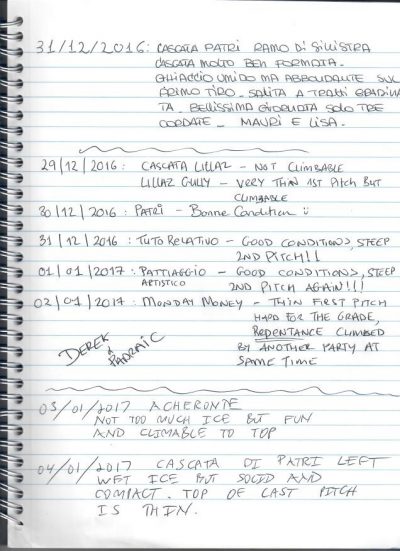 31/12/2016: CASCATA PATRI RAMO DI SINISTRA
CASCATA MOLTO BEN FORMATA.
GHIACCIO UMIDO MA ABBONDANTE SUL
PRIMO TIRO. SALITA A TRATTI GRADINA
TA. BELLISSIMA GIORNATA SOLO TRE
CORDATE. MAURI E LISA.
29/12/2016: CASCATA LILLAZ - NOT CLIMBABLE
LILLAZ GULLY - VERY THIN 1ST PITCH BUT
CLIMBABLE
30/12/2016: PATRI - Bonne Condition
31/12/2016: TUTO RELATIVO - GOOD CONDITIONS, STEEP
2ND PITCH!!
01/01/2017: PATTIAGGIO - GOOD CONDITIONS, STEEP
ARTISTICO 2ND PITCH AGAIN!!!
02/01/2017: MONDAY MONEY - THIN FIRST PITCH
HARD FOR THE GRADE,
REPENTANCE CLIMBED
BY ANOTHER PARTY AT
SAME TIME
DEREK
& PADRAIC
03/01/2017 ACHERONTE
NOT TOO MUCH ICE BUT FUN
AND CLIMABLE TO TOP
04/01/2017 CASCATA DI PATRI LEFT
WET ICE BUT SOLID AND
COMPACT. TOP OF LAST PITCH
IS THIN.